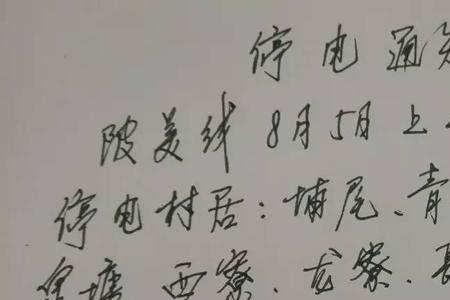 停电通知
陂美线 8月5日上
停电村居：埔尾、青
塘、西寮、龙寮、